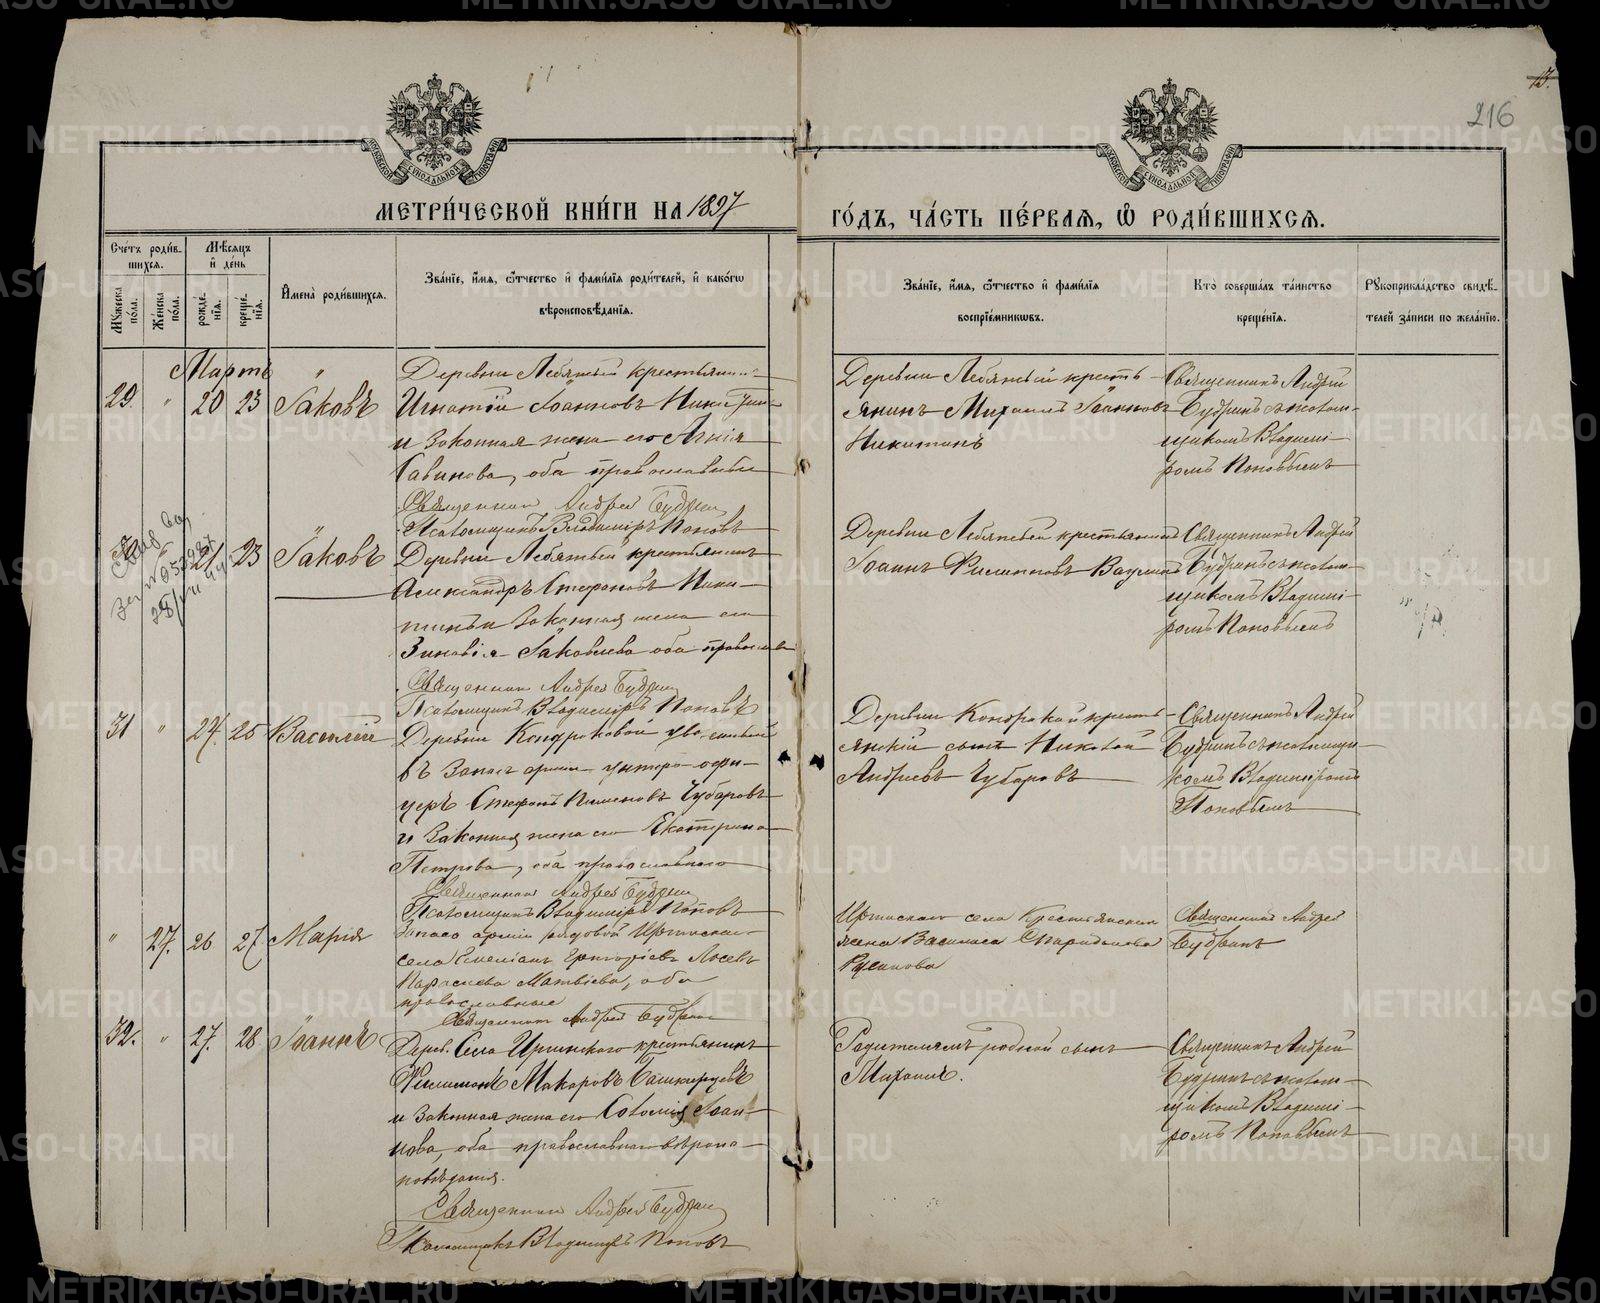 13.
216
МЕТРИ́ЧЕСКОЙ КНИ́ГИ НА 1897
ГО́ДЪ, ЧА́СТЬ ПЕ́РВАЯ, Ѡ РОДИ́ВШИХСЯ.
Сче́тъ роди́в-
шихся.
Му́жеска по́ла.
Же́нска по́ла.
Мѣ́сяцъ
и҆ де́нь
рожде́-
нїя.
креще́-
нїя.
И҆мена̀ роди́вшихся.
Зва́нїе, и҆́мя, ѻ҆́тчество и҆ фами́лїя роди́телей, и҆ како́гѡ
вѣроисповѣ́данїя.
Зва́нїе, и҆́мя, ѻ҆́тчество и҆ фами́лїя
воспрїе́мникѡвъ.
Кто̀ соверша́лъ та́инство
креще́нїя.
Рꙋкоприкла́дство свидѣ́-
телей за́писи по жела́нїю.
Мартъ
29 " 20 23 Іаковъ
Деревни Лебяжьей крестьянинъ
Игнатій Іоанновъ Никитинъ
и законная жена его Агнія
Савинова, оба православные
Священник Андрей Будрин
Псаломщикъ Владиміръ Поповъ
Деревни Лебяжьей кресть-
янинъ Михаилъ Іоанновъ
Никитинъ
Священникъ Андрей
Будринъ съ псалом-
щикомъ Владимі-
ромъ Поповымъ
21 23 Іаковъ
Деревни Лебяжьей крестьянинъ
Александръ Стефановъ Ники-
тинъ и законная жена его
Зиновія Іаковлева оба православ
Священник Андрей Будрин
Псаломщикъ Владиміръ Поповъ
Деревни Лебяжьей крестьянинъ
Іоаннъ Филипповъ
Священникъ Андрей
Будринъ съ псалом-
щикомъ Владимі-
ромъ Поповымъ
31 " 24. 25 Василій
Деревни Кондраковой уволенный
въ запас арміи унтеръ-офи-
церъ Стефанъ Пименовъ Чубаровъ
и законная жена его Екатерина
Петрова, оба православнаго
Священник Андрей Будрин
Псаломщикъ Владиміръ Поповъ
Деревни Кондраковой кресть-
янскій сынъ Николай
Андреевъ Чубаровъ
Священникъ Андрей
Будринъ съ псаломщи-
комъ Владиміромъ
Поповымъ
" 27. 26 27 Марія
Запаса арміи рядовой Иргинскаго
села Емеліанъ Григоріевъ Лосевъ
Параскева Матвіева, оба
православные
Священник Андрей Будрин
Иргинскаго села Крестьянская
жена Василиса Спиридонова
Русинова
Священникъ Андрей
Будринъ
32. " 27. 28 Іоаннъ
Села Иргинскаго крестьянинъ
Филимонъ Макаровъ Башкирцевъ
и законная жена его Соломія Іоан-
нова, оба православнаго вѣроис-
повѣданія.
Священник Андрей Будрин
Псаломщикъ Владиміръ Поповъ
Родителямъ родной сынъ
Михаилъ.
Священникъ Андрей
Будринъ съ псалом-
щикомъ Владимі-
ромъ Поповымъ
METRIKI.GASO-URAL.RU